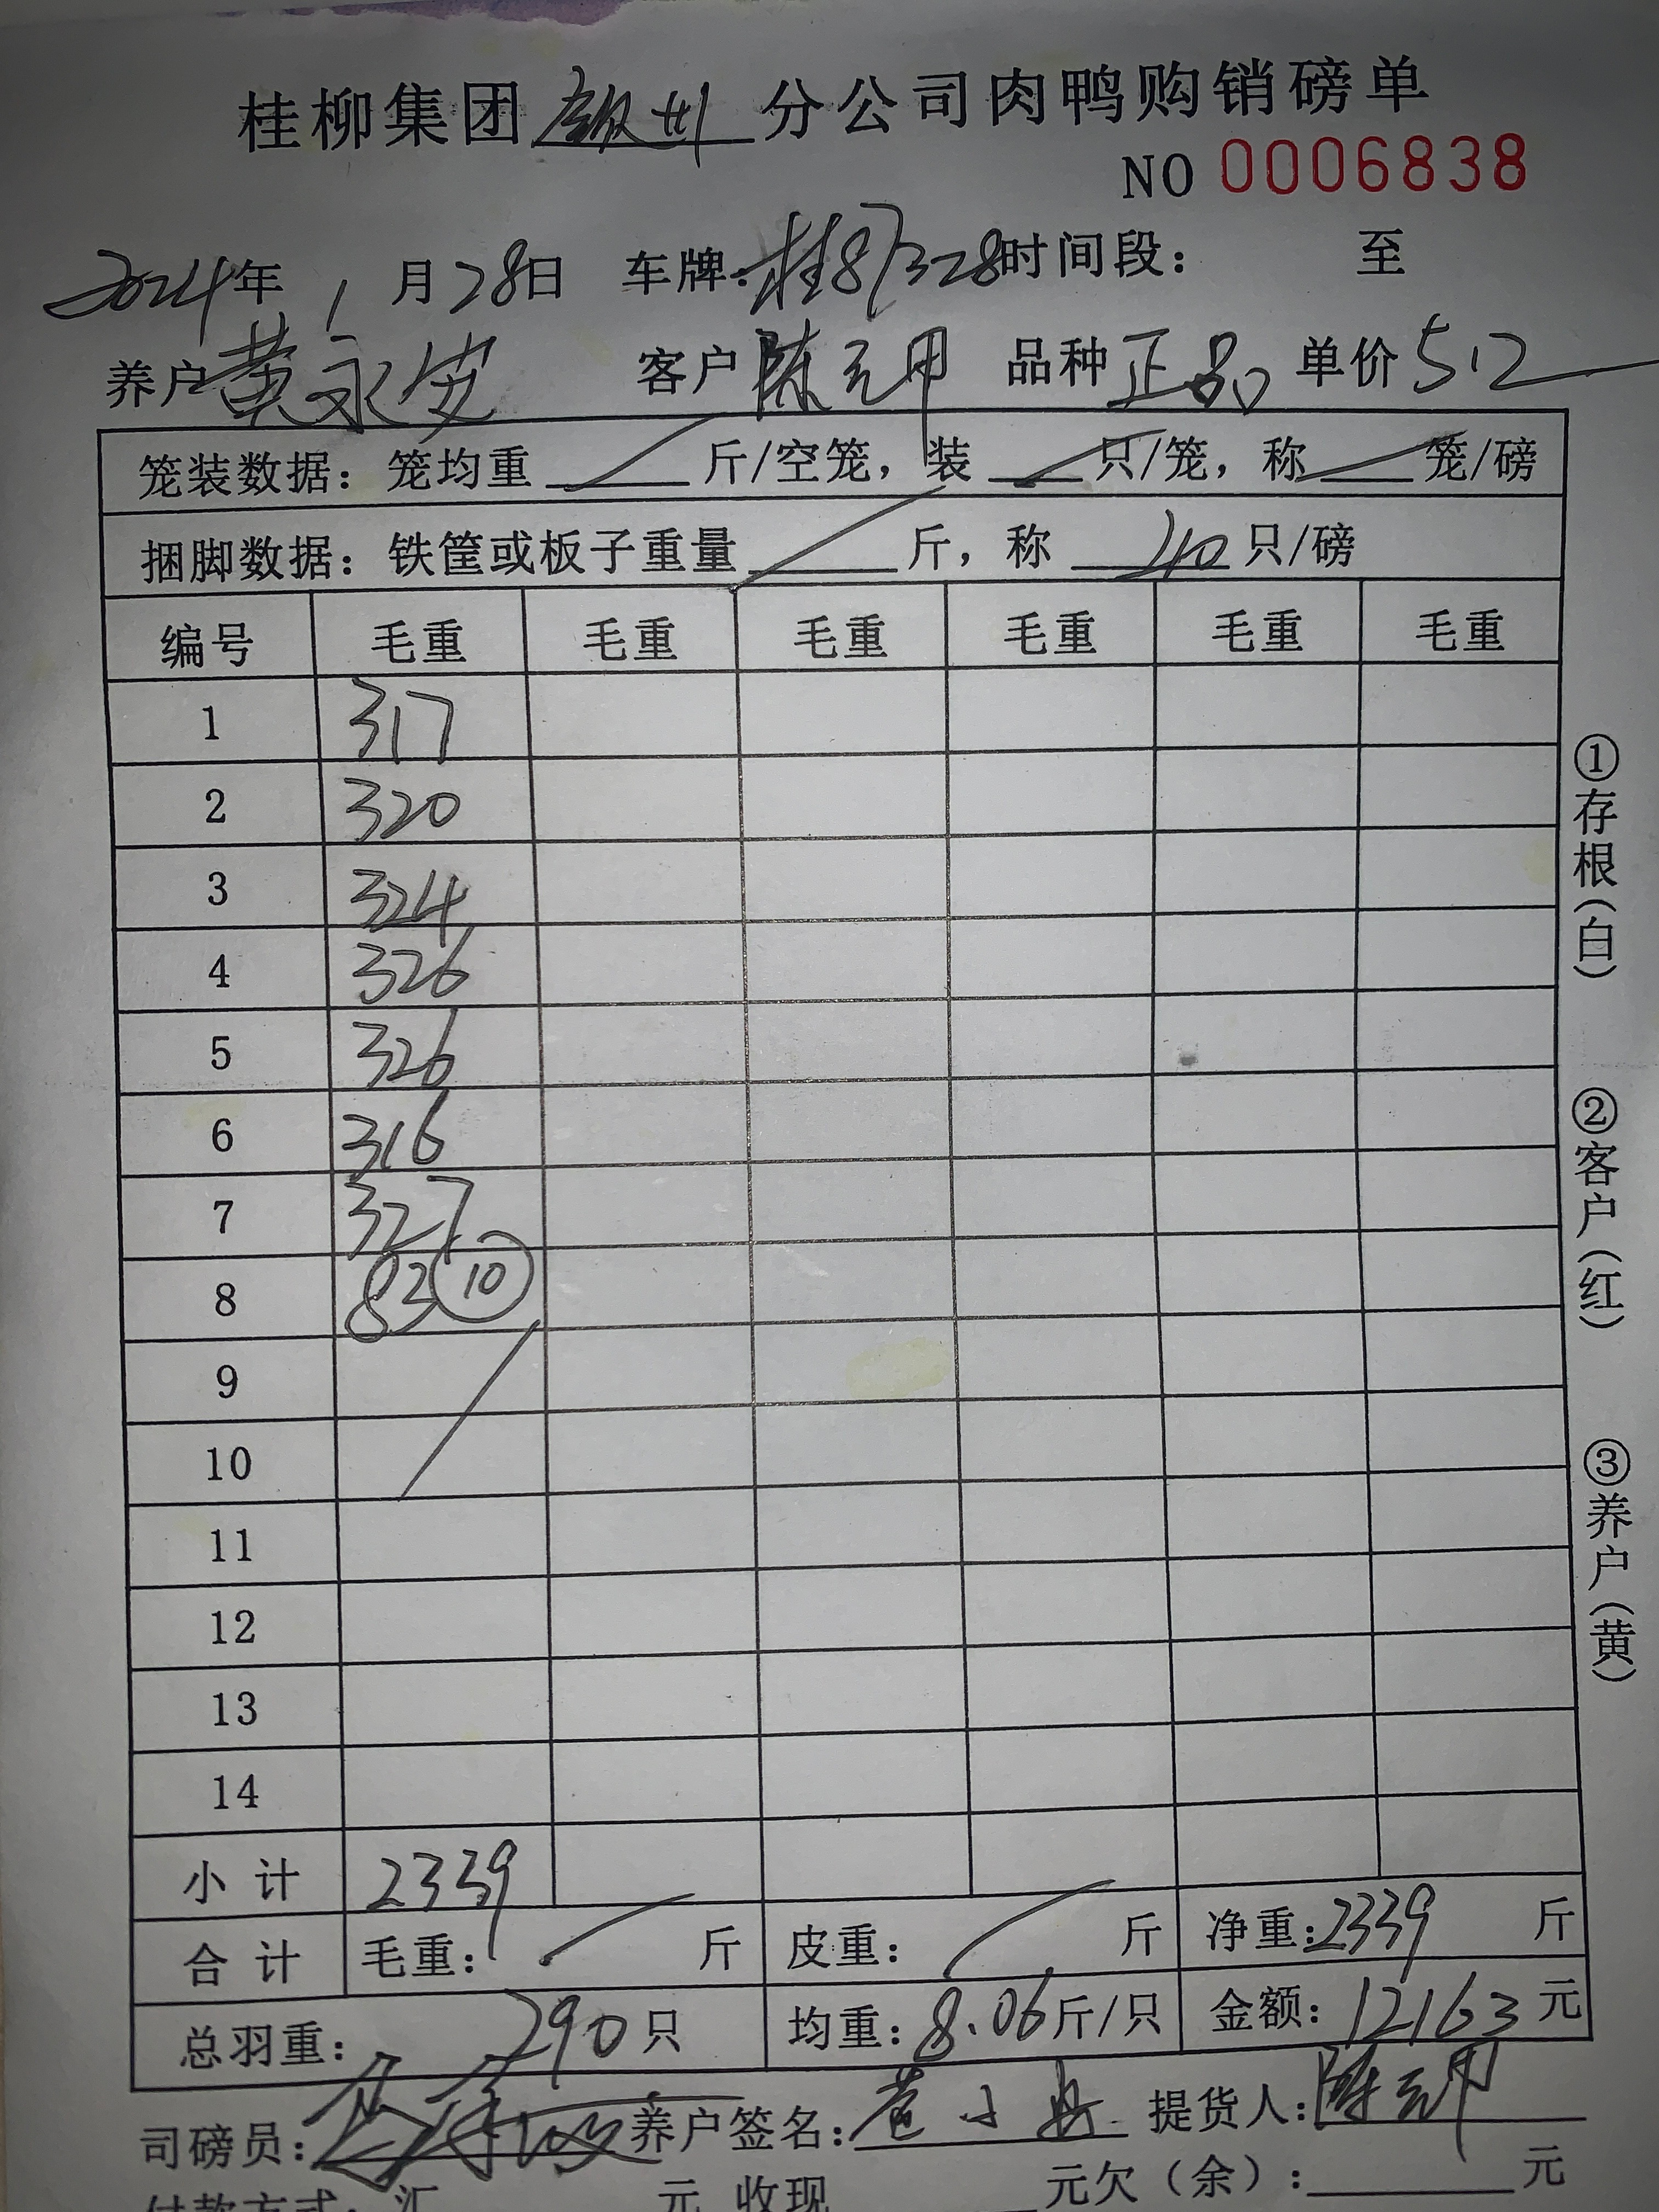 桂柳集团钦州分公司肉鸭购销磅单
NO 0006838
2024年 1 月28日 车牌:桂87328时间段: 至
养户黄永安 客户陈元甲 品种正品 单价5.2
笼装数据:笼均重 斤/空笼,装 只/笼,称 笼/磅
捆脚数据:铁筐或板子重量 斤,称 40只/磅
编号 毛重 毛重 毛重 毛重 毛重 毛重
1 317
2 320
3 324
4 326
5 326
6 316
7 327
8 83 10
9
10
11
12
13
14
小计 2339
合计 毛重: 斤 皮重: 斤 净重:2339 斤
总羽重: 290只 均重:8.06斤/只 金额:12163元
司磅员: 养户签名: 提货人:陈元甲
付款方式:汇 元 收现 元欠(余): 元
①存根(白)
②客户(红)
③养户(黄)